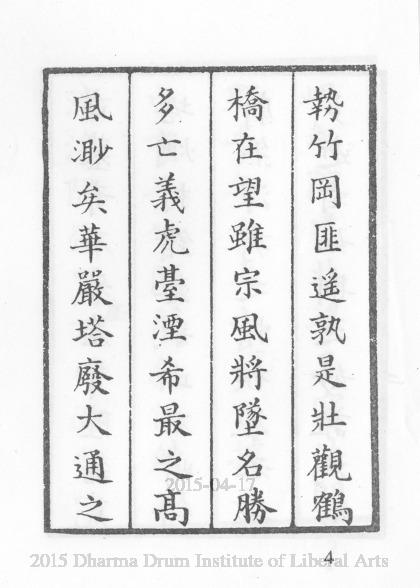 勢竹岡匪遥孰是壯觀鶴
橋在望雖宗風將墜名勝
多亡義虎臺湮希最之髙
風渺矣華嚴塔廢大通之
2015-04-17
4
2015 Dharma Drum Institute of Liberal Arts